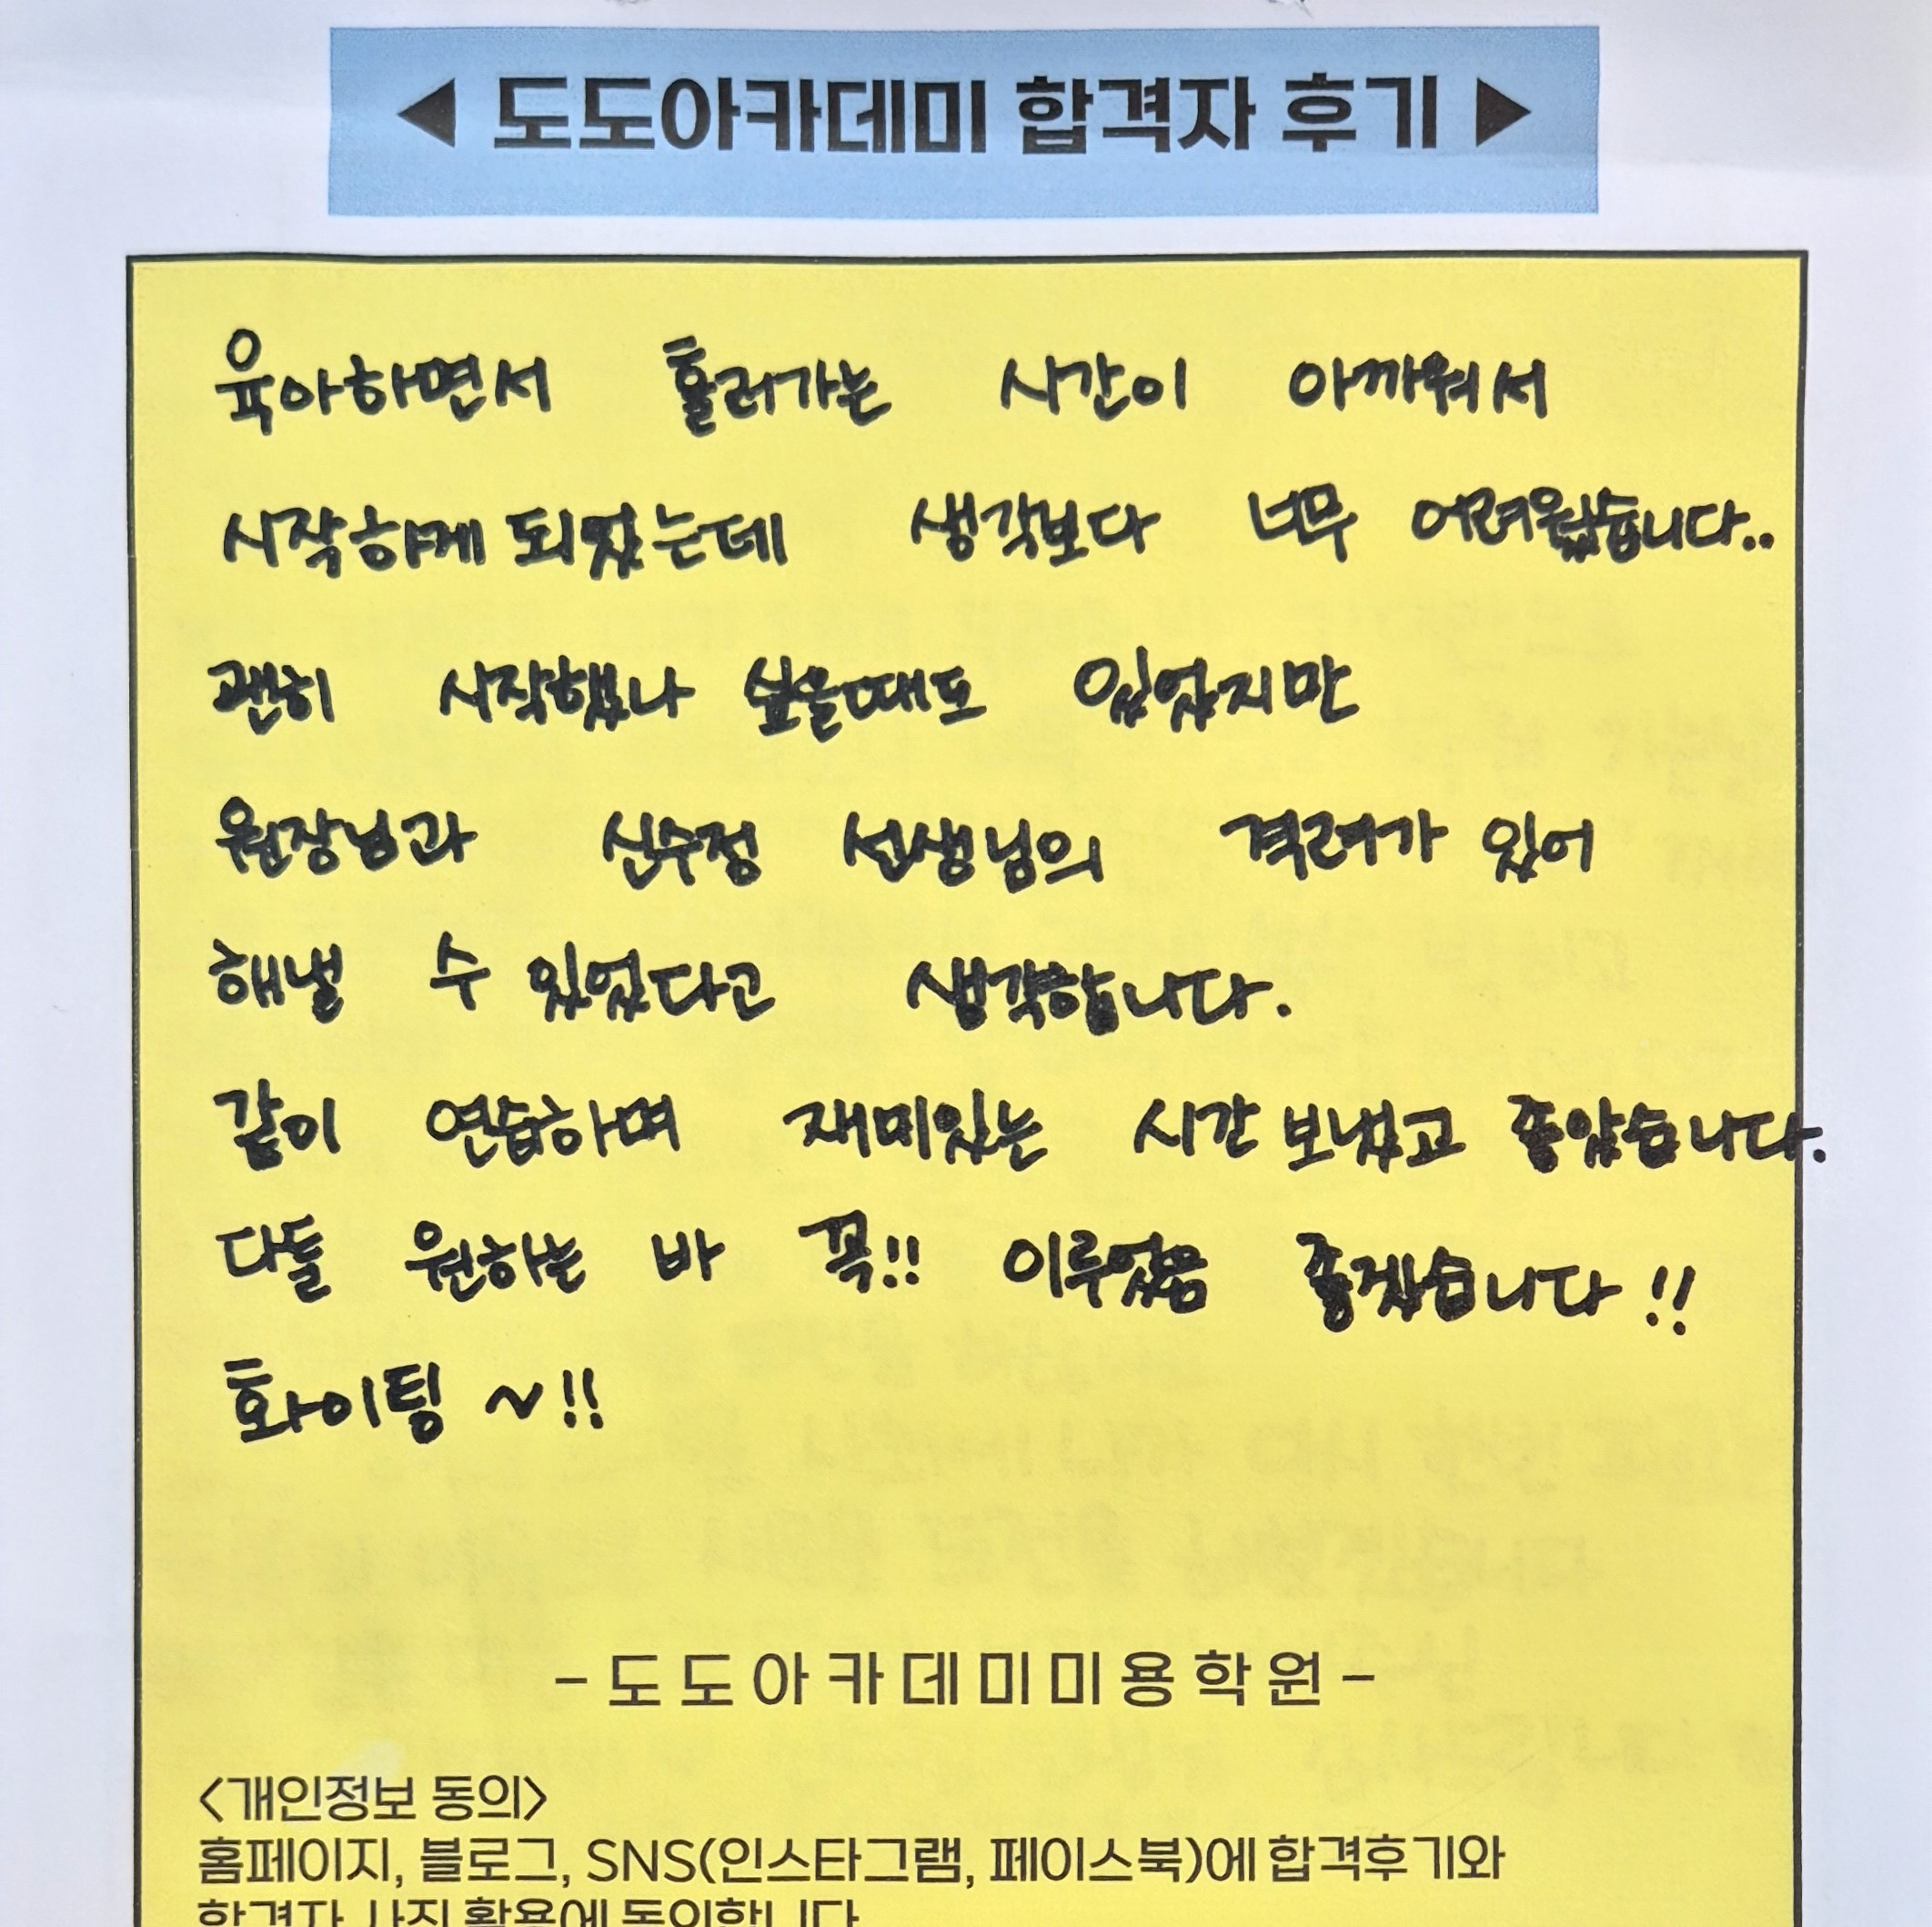 ◀ 도도아카데미 합격자 후기 ▶
육아하면서 흘러가는 시간이 아까워서
시작하게 되었는데 생각보다 너무 어려웠습니다..
괜히 시작했나 싶을때도 있었지만
원장님과 신수정 선생님의 격려가 있어
해낼 수 있었다고 생각합니다.
같이 연습하며 재미있는 시간 보냈고 좋았습니다.
다들 원하는 바 꼭!! 이루었음 좋겠습니다!!
화이팅 ~!!
- 도도아카데미미용학원 -
<개인정보 동의>
홈페이지, 블로그, SNS(인스타그램, 페이스북)에 합격후기와
합격자 사진 활용에 동의합니다